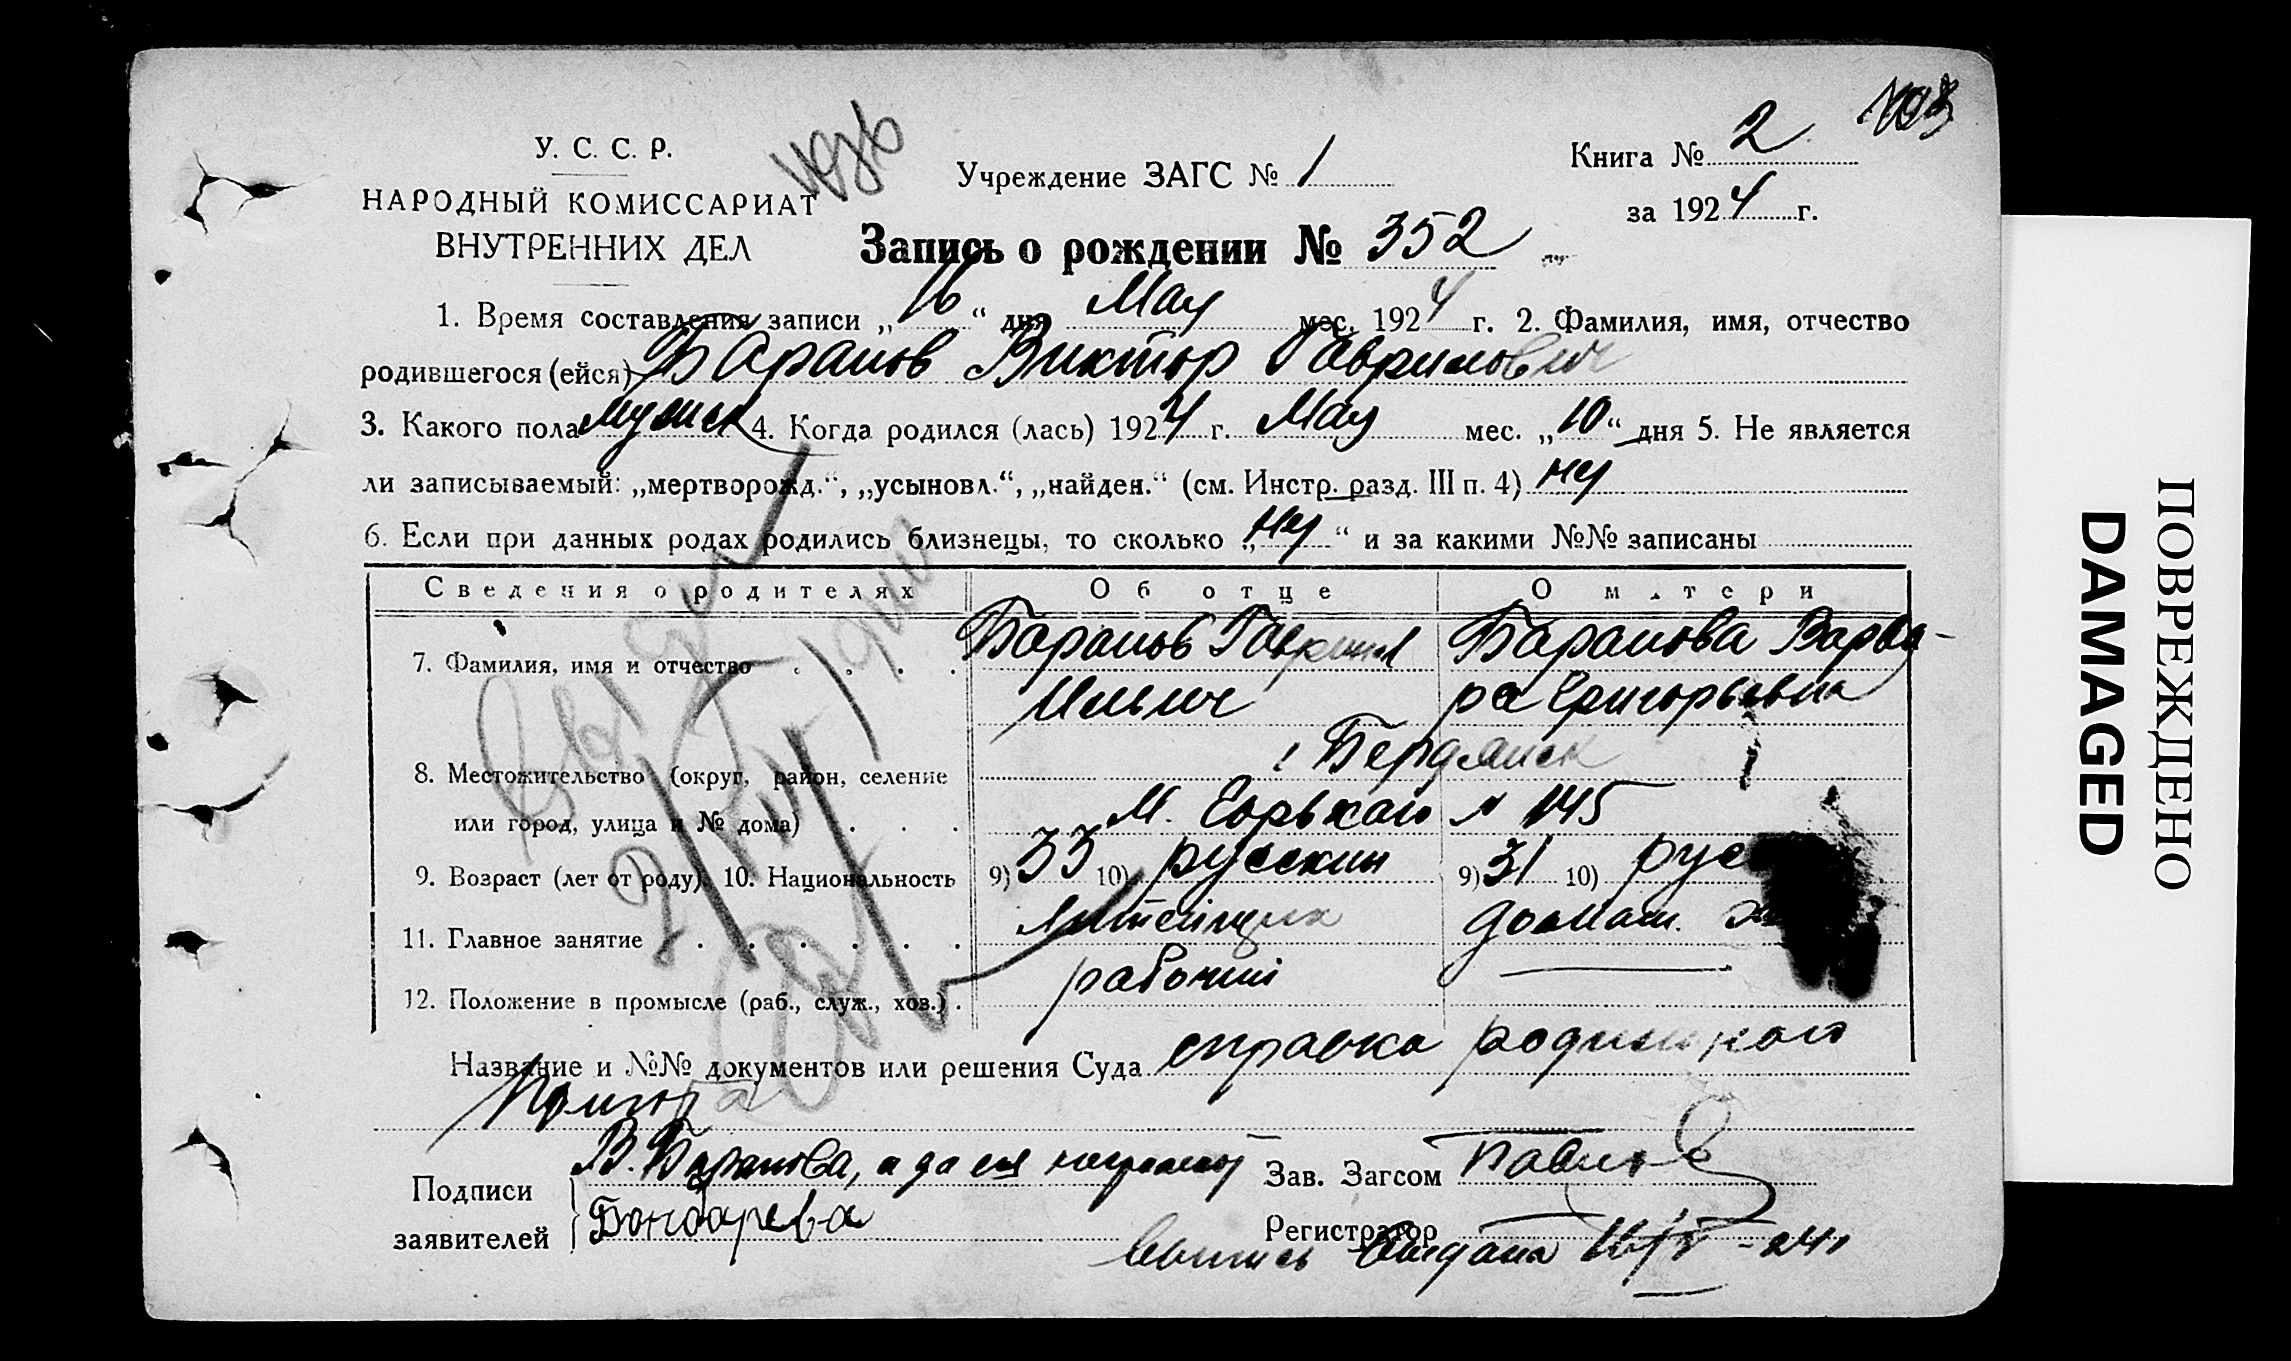 У. С. С. Р.
НАРОДНЫЙ КОМИССАРИАТ
ВНУТРЕННИХ ДЕЛ
Учреждение ЗАГС № 1
Книга № 2
за 1924 г.
Запись о рождении № 352
1. Время составления записи „16“ дня Мая мес. 1924 г. 2. Фамилия, имя, отчество
родившегося (ейся) Баранов Виктор Гаврилович
3. Какого пола мужск 4. Когда родился (лась) 1924 г. Мая мес. „10“ дня 5. Не является
ли записываемый: „мертворожд.“, „усыновл.“, „найден.“ (см. Инстр. разд. III п. 4)
6. Если при данных родах родились близнецы, то сколько „ “ и за какими №№ записаны
Сведения о родителях Об отце О матери
7. Фамилия, имя и отчество . . . . Баранов Гавриил Баранова Варва-
Ильич ра Григорьевна
г Бердянск
8. Местожительство (округ, район, селение
М. Горького № 145
или город, улица и № дома) . . .
9. Возраст (лет от роду) 10. Национальность 9) 33 10) русский 9) 31 10) рус
11. Главное занятие . . . . . . Литейщик домаш.
12. Положение в промысле (раб., служ., хоз.) . рабочий
Название и №№ документов или решения Суда справка родильного
приюта
Подписи
заявителей
В. Баранова, а за нея неграмот
Бондарева
Зав. Загсом Павлов
Регистратор
выпись выдана 16/V - 24
ПОВРЕЖДЕНО
DAMAGED